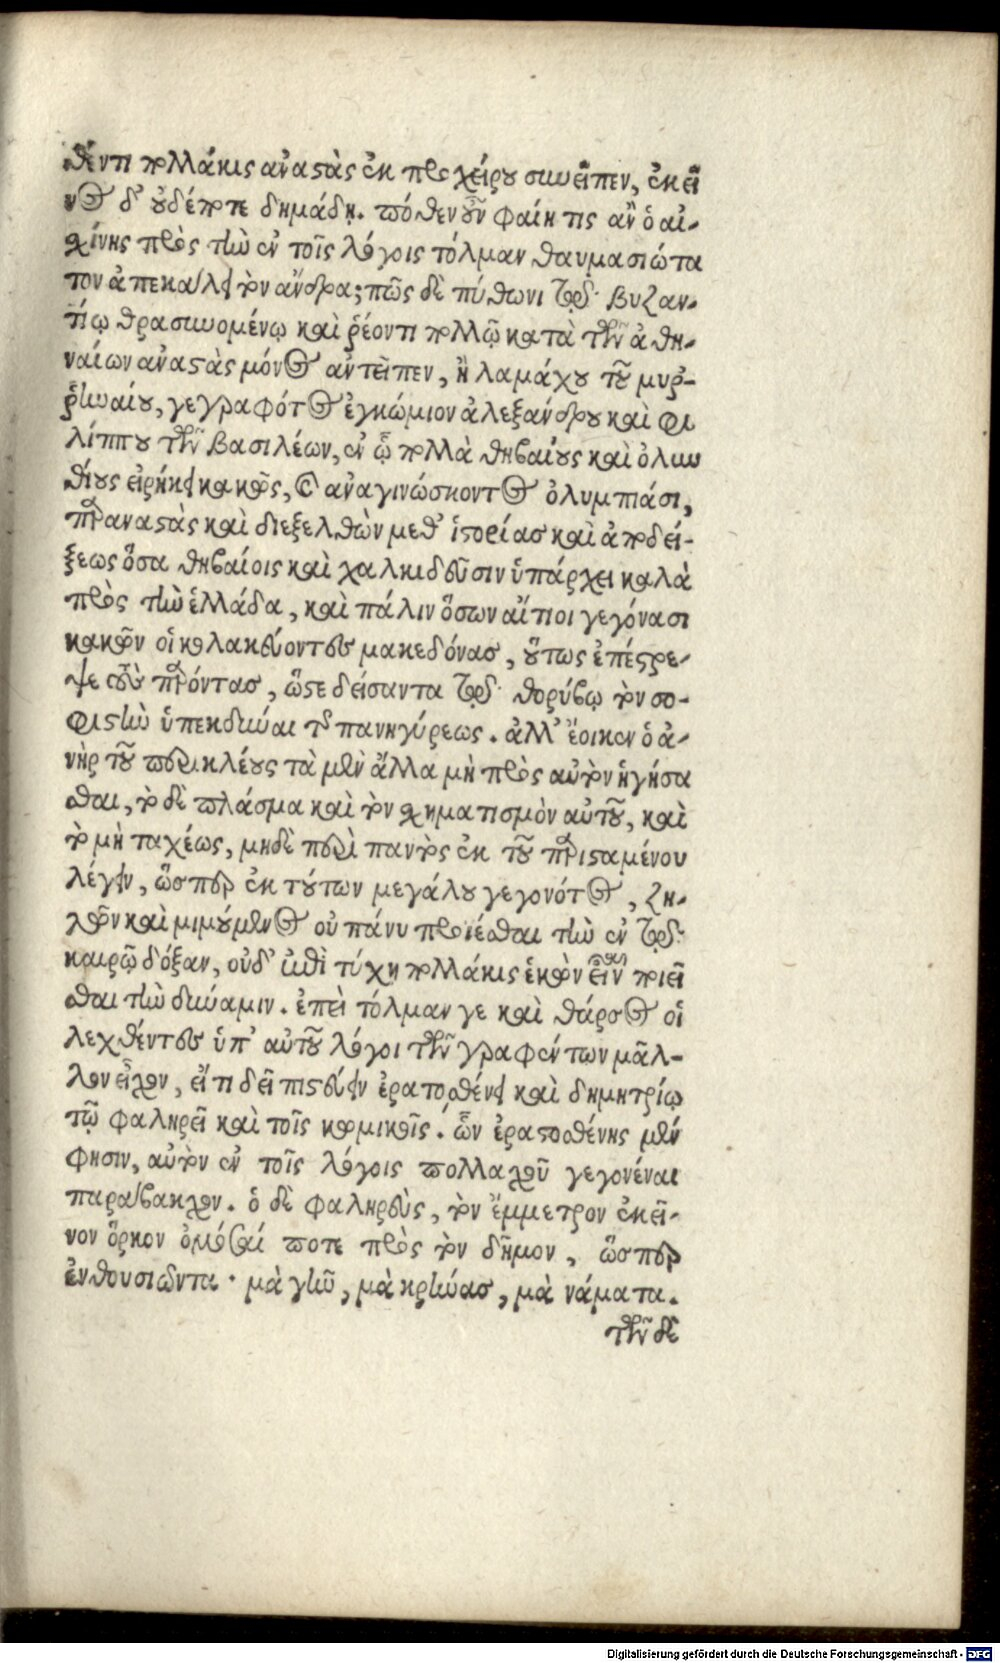 θέντι πολλάκις ἀναστὰς ἐκ προχείρου συνεῖπεν, ἐκεῖ
νος δ' οὐδέποτε δημάδῃ. πόθεν οὖν φαίη τις ἂν ὁ αἰ-
σχίνης πρὸς τὴν ἐν τοῖς λόγοις τόλμαν θαυμασιώτα
τον ἀπεκάλει τὸν ἄνδρα; πῶς δὲ πύθωνι τῷ βυζαν-
τίῳ θρασυνομένῳ καὶ ῥέοντι πολλῷ κατὰ τῶν ἀθη-
ναίων ἀναστὰς μόνος ἀντεῖπεν, ἢ λαμάχου τοῦ μυρ-
ῥηναίου, γεγραφότος ἐγκώμιον ἀλεξάνδρου καὶ φι
λίππου τῶν βασιλέων, ἐν ᾧ πολλὰ θηβαίους καὶ ὀλυν
θίους εἰρήκει κακῶς, καὶ ἀναγινώσκοντος ὀλυμπιάσι,
παραναστὰς καὶ διεξελθὼν μεθ' ἱστορίας καὶ ἀποδεί-
ξεως ὅσα θηβαίοις καὶ χαλκιδεῦσιν ὑπάρχει καλὰ
πρὸς τὴν ἑλλάδα, καὶ πάλιν ὅσων αἴτιοι γεγόνασι
κακῶν οἱ κολακεύοντες μακεδόνας, οὕτως ἐπέστρε-
ψε τοὺς παρόντας, ὥστε δείσαντα τῷ θορύβῳ τὸν σο-
φιστὴν ὑπεκδῦναι τῆς πανηγύρεως. ἀλλ' ἔοικεν ὁ ἀ-
νὴρ τοῦ περικλέους τὰ μὲν ἄλλα μὴ πρὸς αὑτὸν ἡγήσα
σθαι, τὸ δὲ πλάσμα καὶ τὸν σχηματισμὸν αὐτοῦ, καὶ
τὸ μὴ ταχέως, μηδὲ περὶ παντὸς ἐκ τοῦ παρισταμένου
λέγειν, ὥσπερ ἐκ τούτων μεγάλου γεγονότος, ζη-
λῶν καὶ μιμούμενος οὐ πάνυ προσίεσθαι τὴν ἐν τῷ
καιρῷ δόξαν, οὐδ' ἐπὶ τύχῃ πολλάκις ἑκὼν εἶναι ποιεῖ
σθαι τὴν δύναμιν. ἐπεὶ τόλμαν γε καὶ θάρσος οἱ
λεχθέντες ὑπ' αὐτοῦ λόγοι τῶν γραφέντων μᾶλ-
λον εἶχον, εἴ τι δεῖ πιστεύειν ἐρατοσθένει καὶ δημητρίῳ
τῷ φαληρεῖ καὶ τοῖς κωμικοῖς. ὧν ἐρατοσθένης μέν
φησιν, αὐτὸν ἐν τοῖς λόγοις πολλαχοῦ γεγονέναι
παράβακχον. ὁ δὲ φαληρεὺς, τὸν ἔμμετρον ἐκεῖ-
νον ὅρκον ὀμόσαι ποτε πρὸς τὸν δῆμον, ὥσπερ
ἐνθουσιῶντα· μὰ γῆν, μὰ κρήνας, μὰ νάματα.
τῶν δὲ
Digitalisierung gefördert durch die Deutsche Forschungsgemeinschaft - DFG